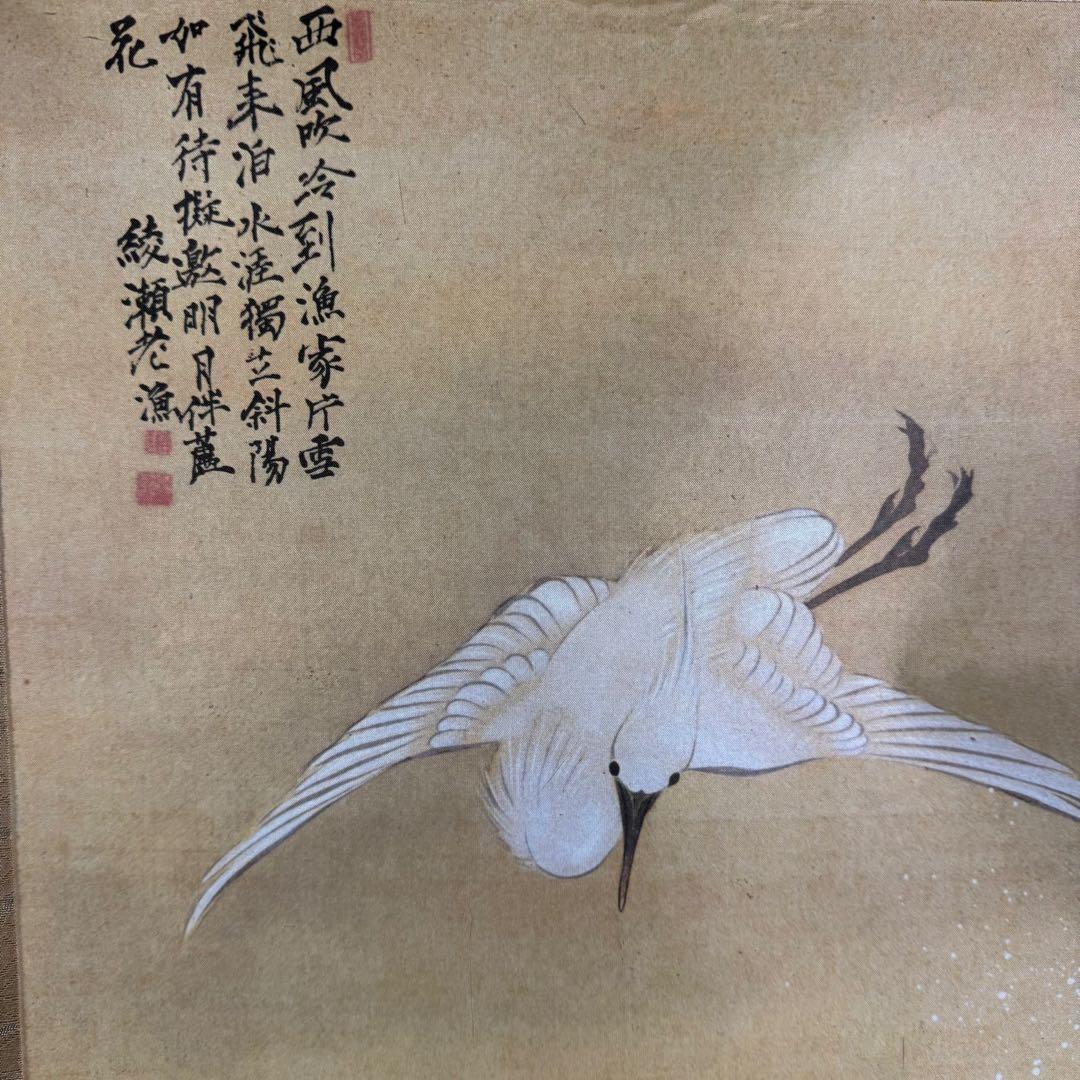 西風吹冷到漁家片雪
飛来泊水涯獨立斜陽
如有待擬邀明月伴蘆
花
綾瀬老漁